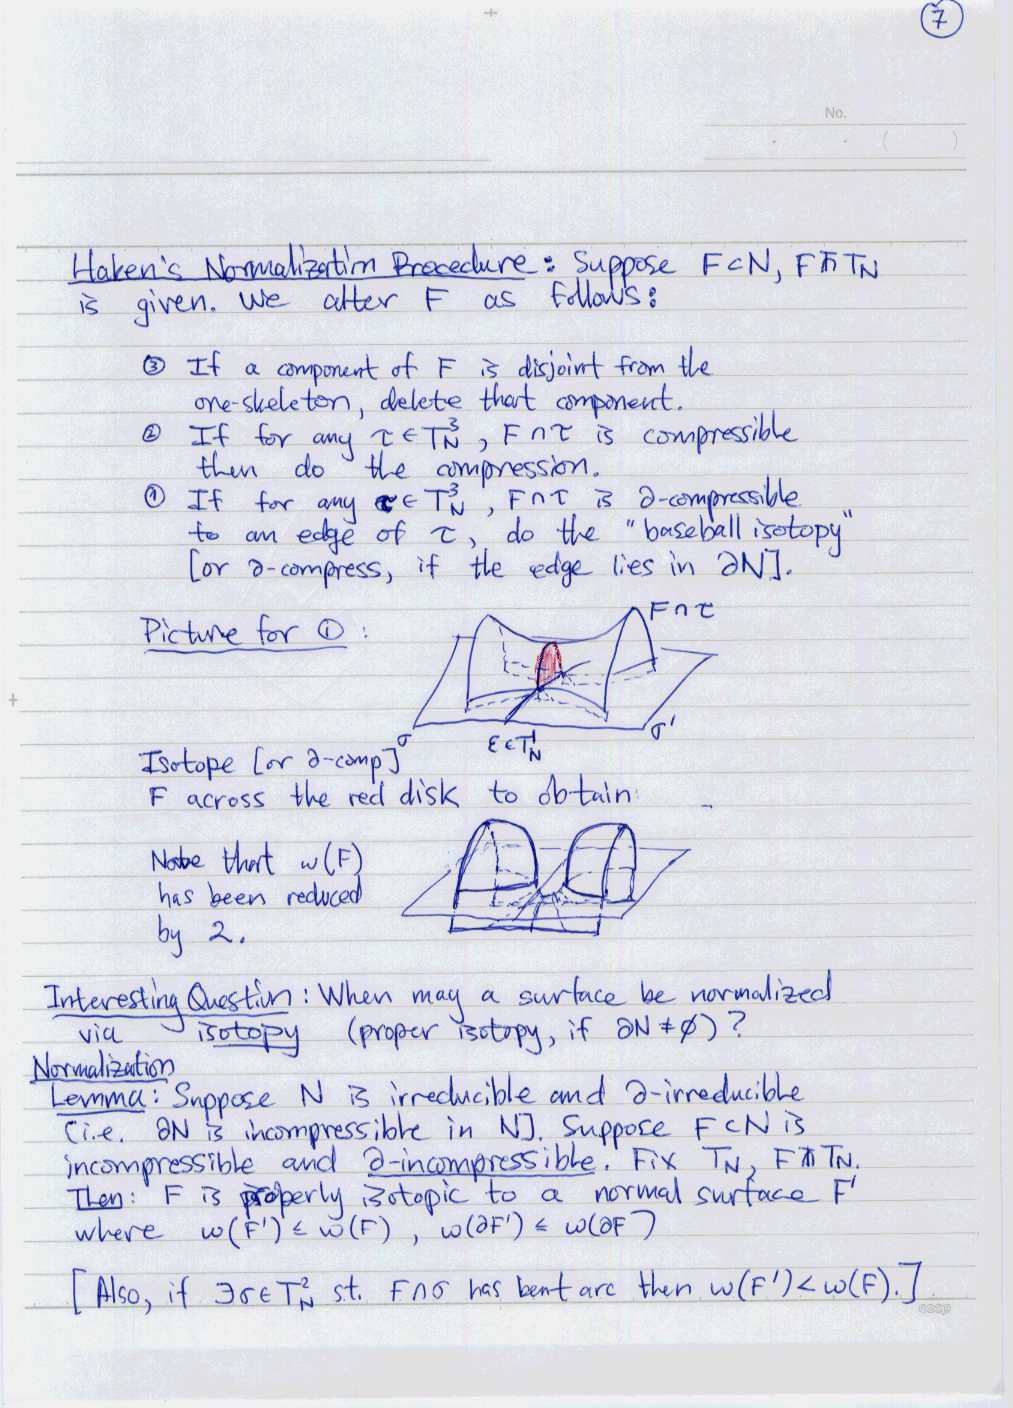 7
No.
. . ( )
Haken's Normalization Procedure: Suppose F⊂N, F⋔T_N
is given. We alter F as follows:
③ If a component of F is disjoint from the
one-skeleton, delete that component.
② If for any τ∈T_N^3, F∩τ is compressible
then do the compression.
① If for any τ∈T_N^3, F∩τ is ∂-compressible
to an edge of τ, do the "baseball isotopy"
[or ∂-compress, if the edge lies in ∂N].
Picture for ①:
F∩τ
σ σ'
ε∈T_N^1
Isotope [or ∂-comp]
F across the red disk to obtain:
Note that w(F)
has been reduced
by 2.
Interesting Question: When may a surface be normalized
via isotopy (proper isotopy, if ∂N≠∅)?
Normalization
Lemma: Suppose N is irreducible and ∂-irreducible
(i.e. ∂N is incompressible in N]. Suppose F⊂N is
incompressible and ∂-incompressible. Fix T_N, F⋔T_N.
Then: F is properly isotopic to a normal surface F'
where w(F')≤w(F), w(∂F')≤w(∂F)
[Also, if ∃σ∈T_N^2 st. F∩σ has bent arc then w(F')<w(F).]